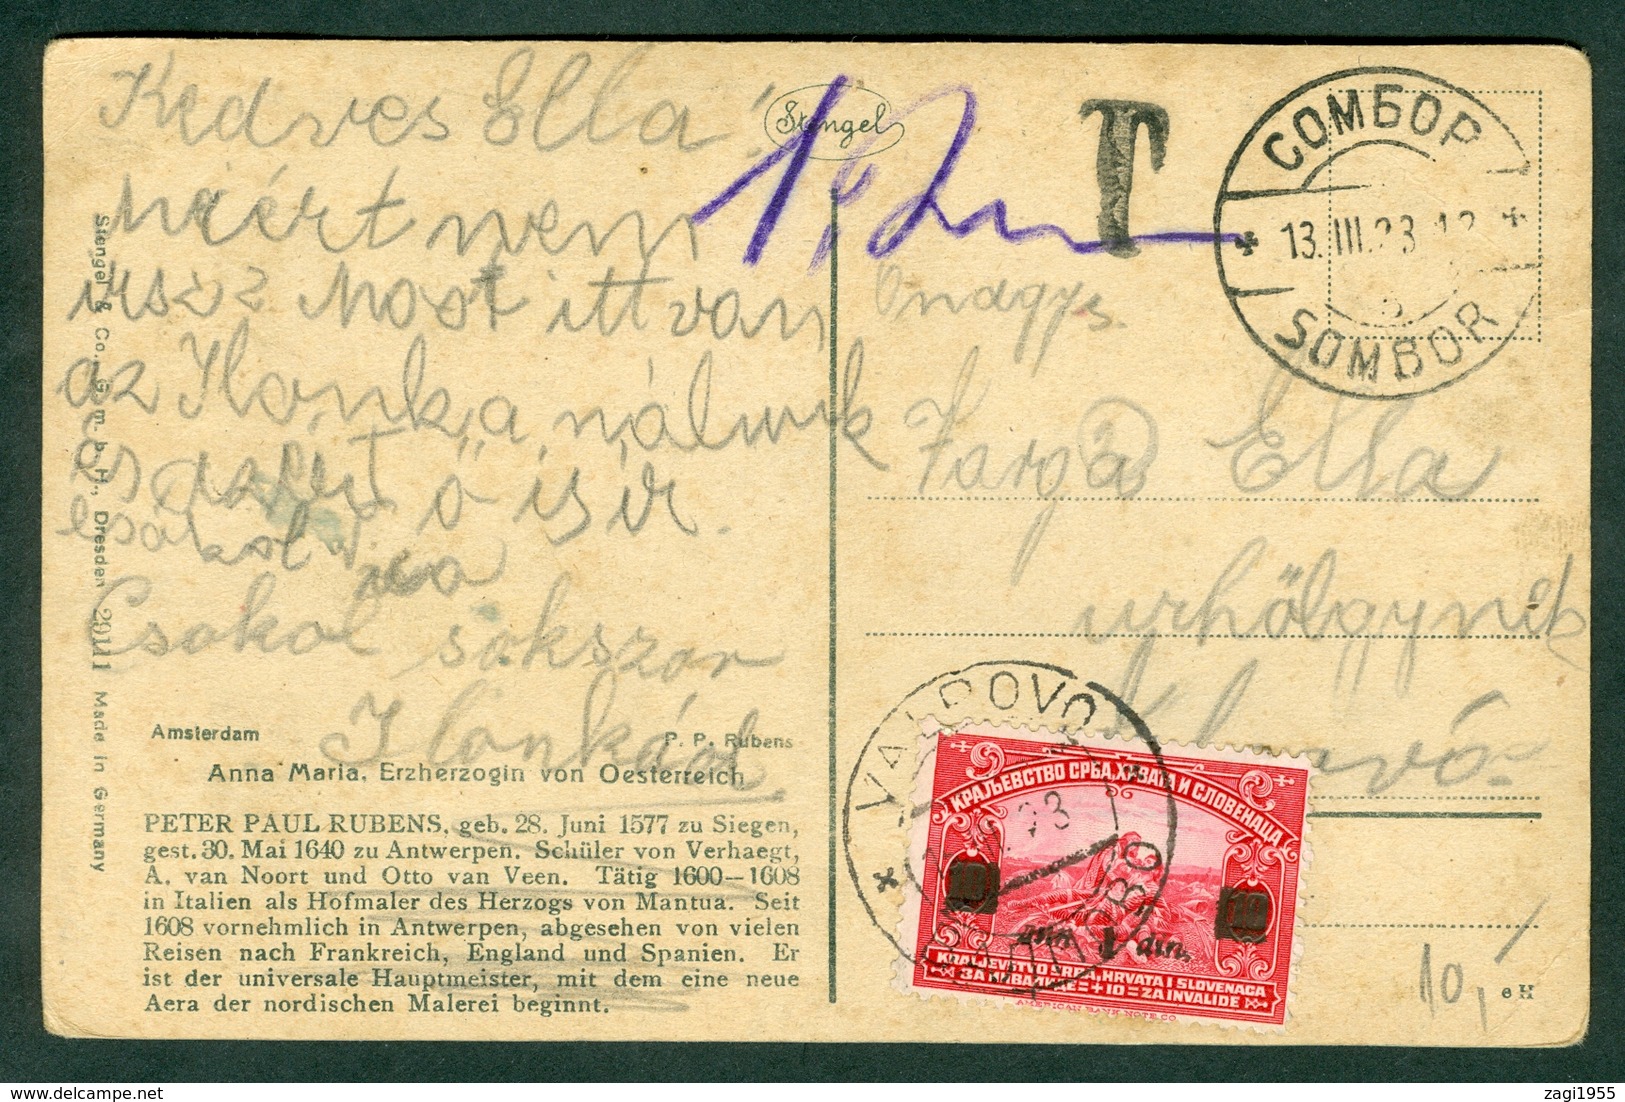 Kedves Ella!
Miért nem
irsz? Most itt van
az Ilonka nálunk
és azért ő is ir.
Csokol
Csokol sokszor
Ilonkád
Stengel
T
СОМБОР
13. III. 23
SOMBOR
Onagys.
Varga Ella
urhölgynek
VALPOVO
ВАЉПОВО
КРАЉЕВСТВО СРБА, ХРВАТА И СЛОВЕНАЦА
1 din.
KRALJEVSTVO SRBA, HRVATA I SLOVENACA
ЗА ИНВАЛИДЕ=+10=ZA INVALIDE
AMERICAN BANK NOTE CO
10,-
Stengel & Co., G. m. b. H., Dresden 29141 Made in Germany
Amsterdam P. P. Rubens
Anna Maria, Erzherzogin von Oesterreich
PETER PAUL RUBENS, geb. 28. Juni 1577 zu Siegen,
gest. 30. Mai 1640 zu Antwerpen. Schüler von Verhaegt,
A. van Noort und Otto van Veen. Tätig 1600—1608
in Italien als Hofmaler des Herzogs von Mantua. Seit
1608 vornehmlich in Antwerpen, abgesehen von vielen
Reisen nach Frankreich, England und Spanien. Er
ist der universale Hauptmeister, mit dem eine neue
Aera der nordischen Malerei beginnt.
e H
zagi1955